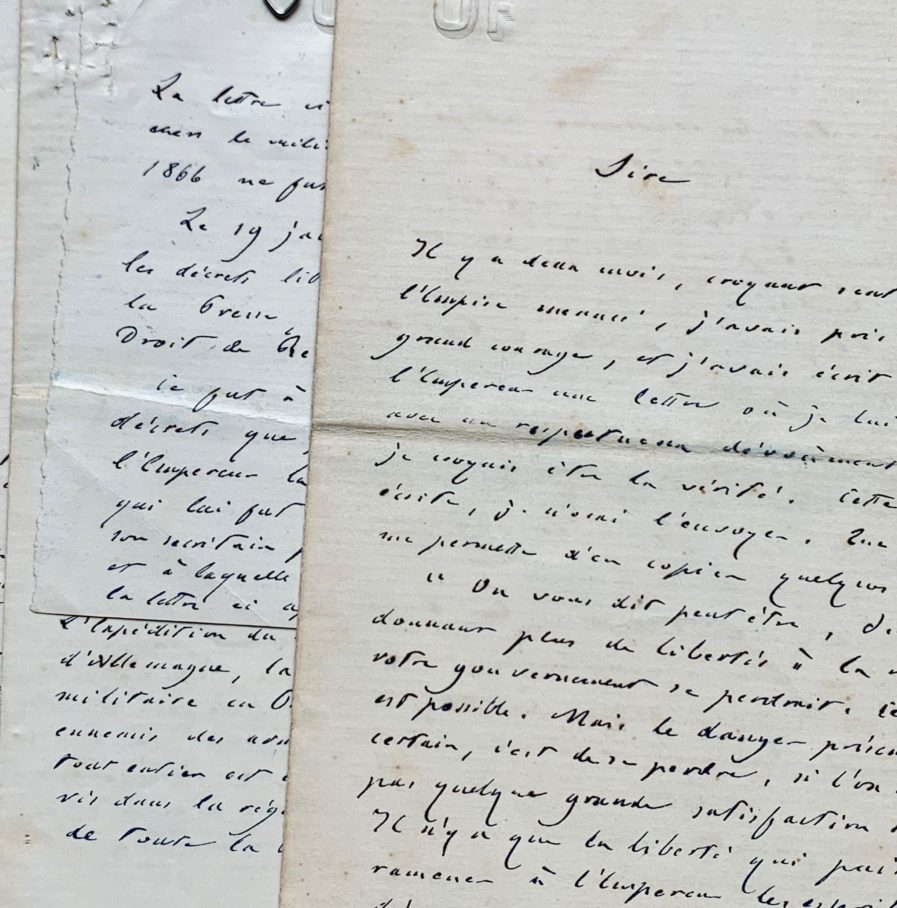 La lettre ci
1866 ne fut
Le 19 jan
les décrets lib
la Presse
Droit de Ré
ce fut à
décrets que
l'Empereur la
qui lui fut
son secrétaire p
et à laquelle
la lettre ci a
L'Expédition du
d'Allemagne, la
militaire en
ennemis des
tout entier est
vis dans la rég
de toute la
Sire
Il y a deux mois, croyant
l'Empire menacé, j'avais pris
grand courage, et j'avais écrit
l'Empereur une lettre où je lui
avec un respectueux dévoûment
je croyais être la vérité. Cette
écrite, je n'osai l'envoyer. Que
me permette d'en copier quelques
" On vous dit peut être, 
donnant plus de libertés à la
votre gouvernement se perdrait. Ce
est possible. Mais le danger
certain, c'est de se perdre, si l'on
pas quelque grande satisfaction
Il n'y a que la liberté qui
ramener à l'Empereur les